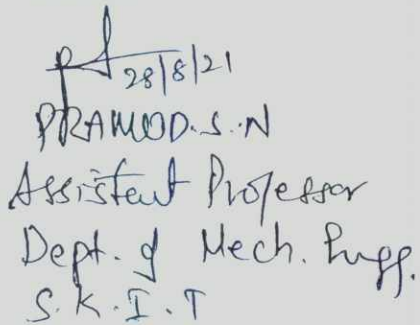 28/8/21
PRAMOD.S.N
Assistent Professor
Dept. of Mech. Engg.
S.K.I.T